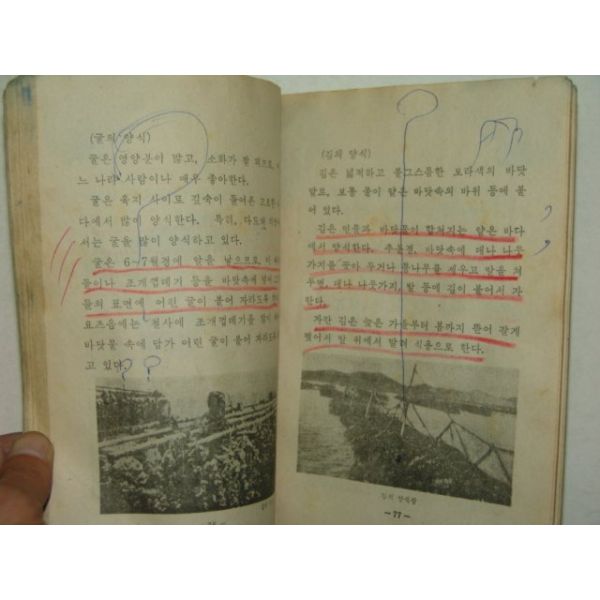 (굴의 양식)
굴은 영양분이 많고, 소화가 잘 되므로, 어
느 나라 사람이나 매우 좋아한다.
굴은 육지 사이로 깊숙이 들어온 고요한
다에서 많이 양식한다. 특히, 다도해
서는 굴을 많이 양식하고 있다.
굴은 6~7월경에 알을 낳으므로, 이
들이나 조개껍데기 등을 바닷속에 넣어
들의 표면에 어린 굴이 붙어 자라도록
요즈음에는 철사에 조개껍데기를 많이
바닷물 속에 담가 어린 굴이 붙어 자라도
고 있다.
(김의 양식)
김은 넓적하고 불그스름한 보라색의 바닷
말로, 보통 물이 맑은 바닷속의 바위 등에 붙
어 있다.
김은 민물과 바닷물이 합쳐지는 얕은 바다
에서 양식한다. 추분경, 바닷속에 대나 나뭇
가지를 꽂아 두거나 통나무를 세우고 발을 쳐
두면, 대나 나뭇가지, 발 등에 김이 붙어서 자
란다.
자란 김은 늦은 가을부터 봄까지 뜯어 잘게
찧어서 발 위에서 말려 식용으로 한다.
김의 양식장
- 77 -